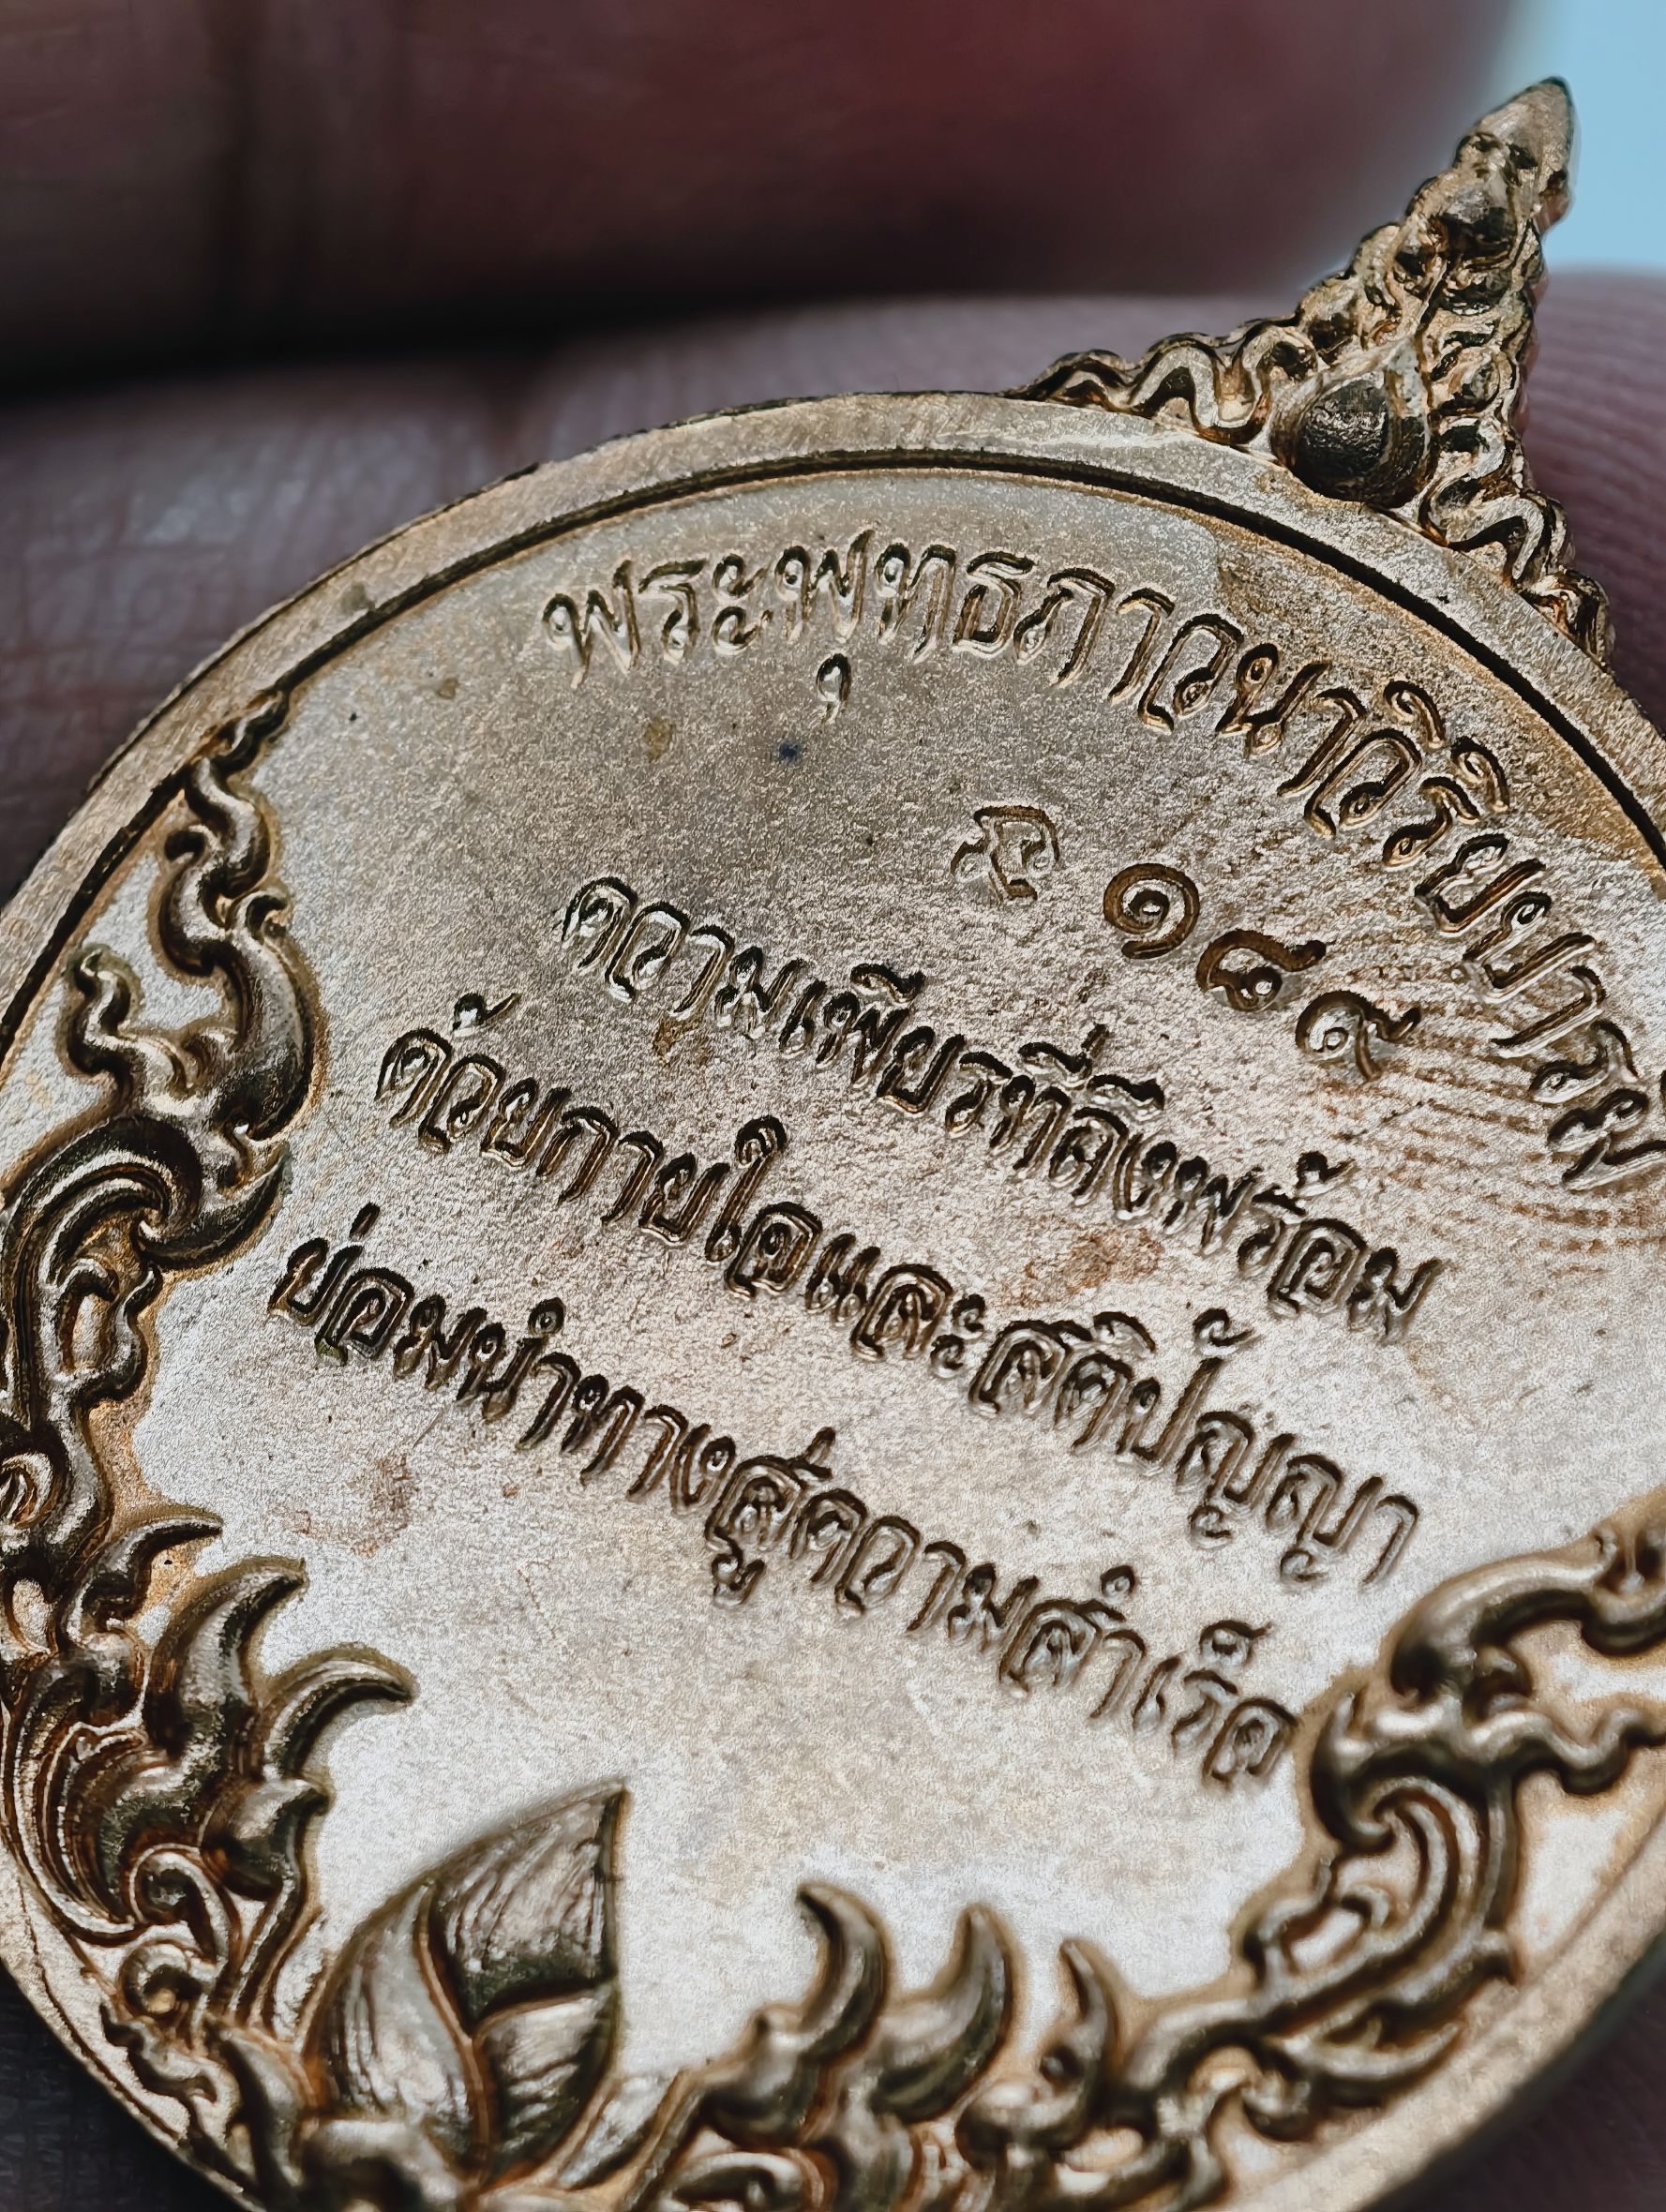 พระพุทธภาวนาวิริยบารมี
๑๘๙
ความเพียรที่ถึงพร้อม
ด้วยกายใจและสติปัญญา
ย่อมนำทางสู่ความสำเร็จ